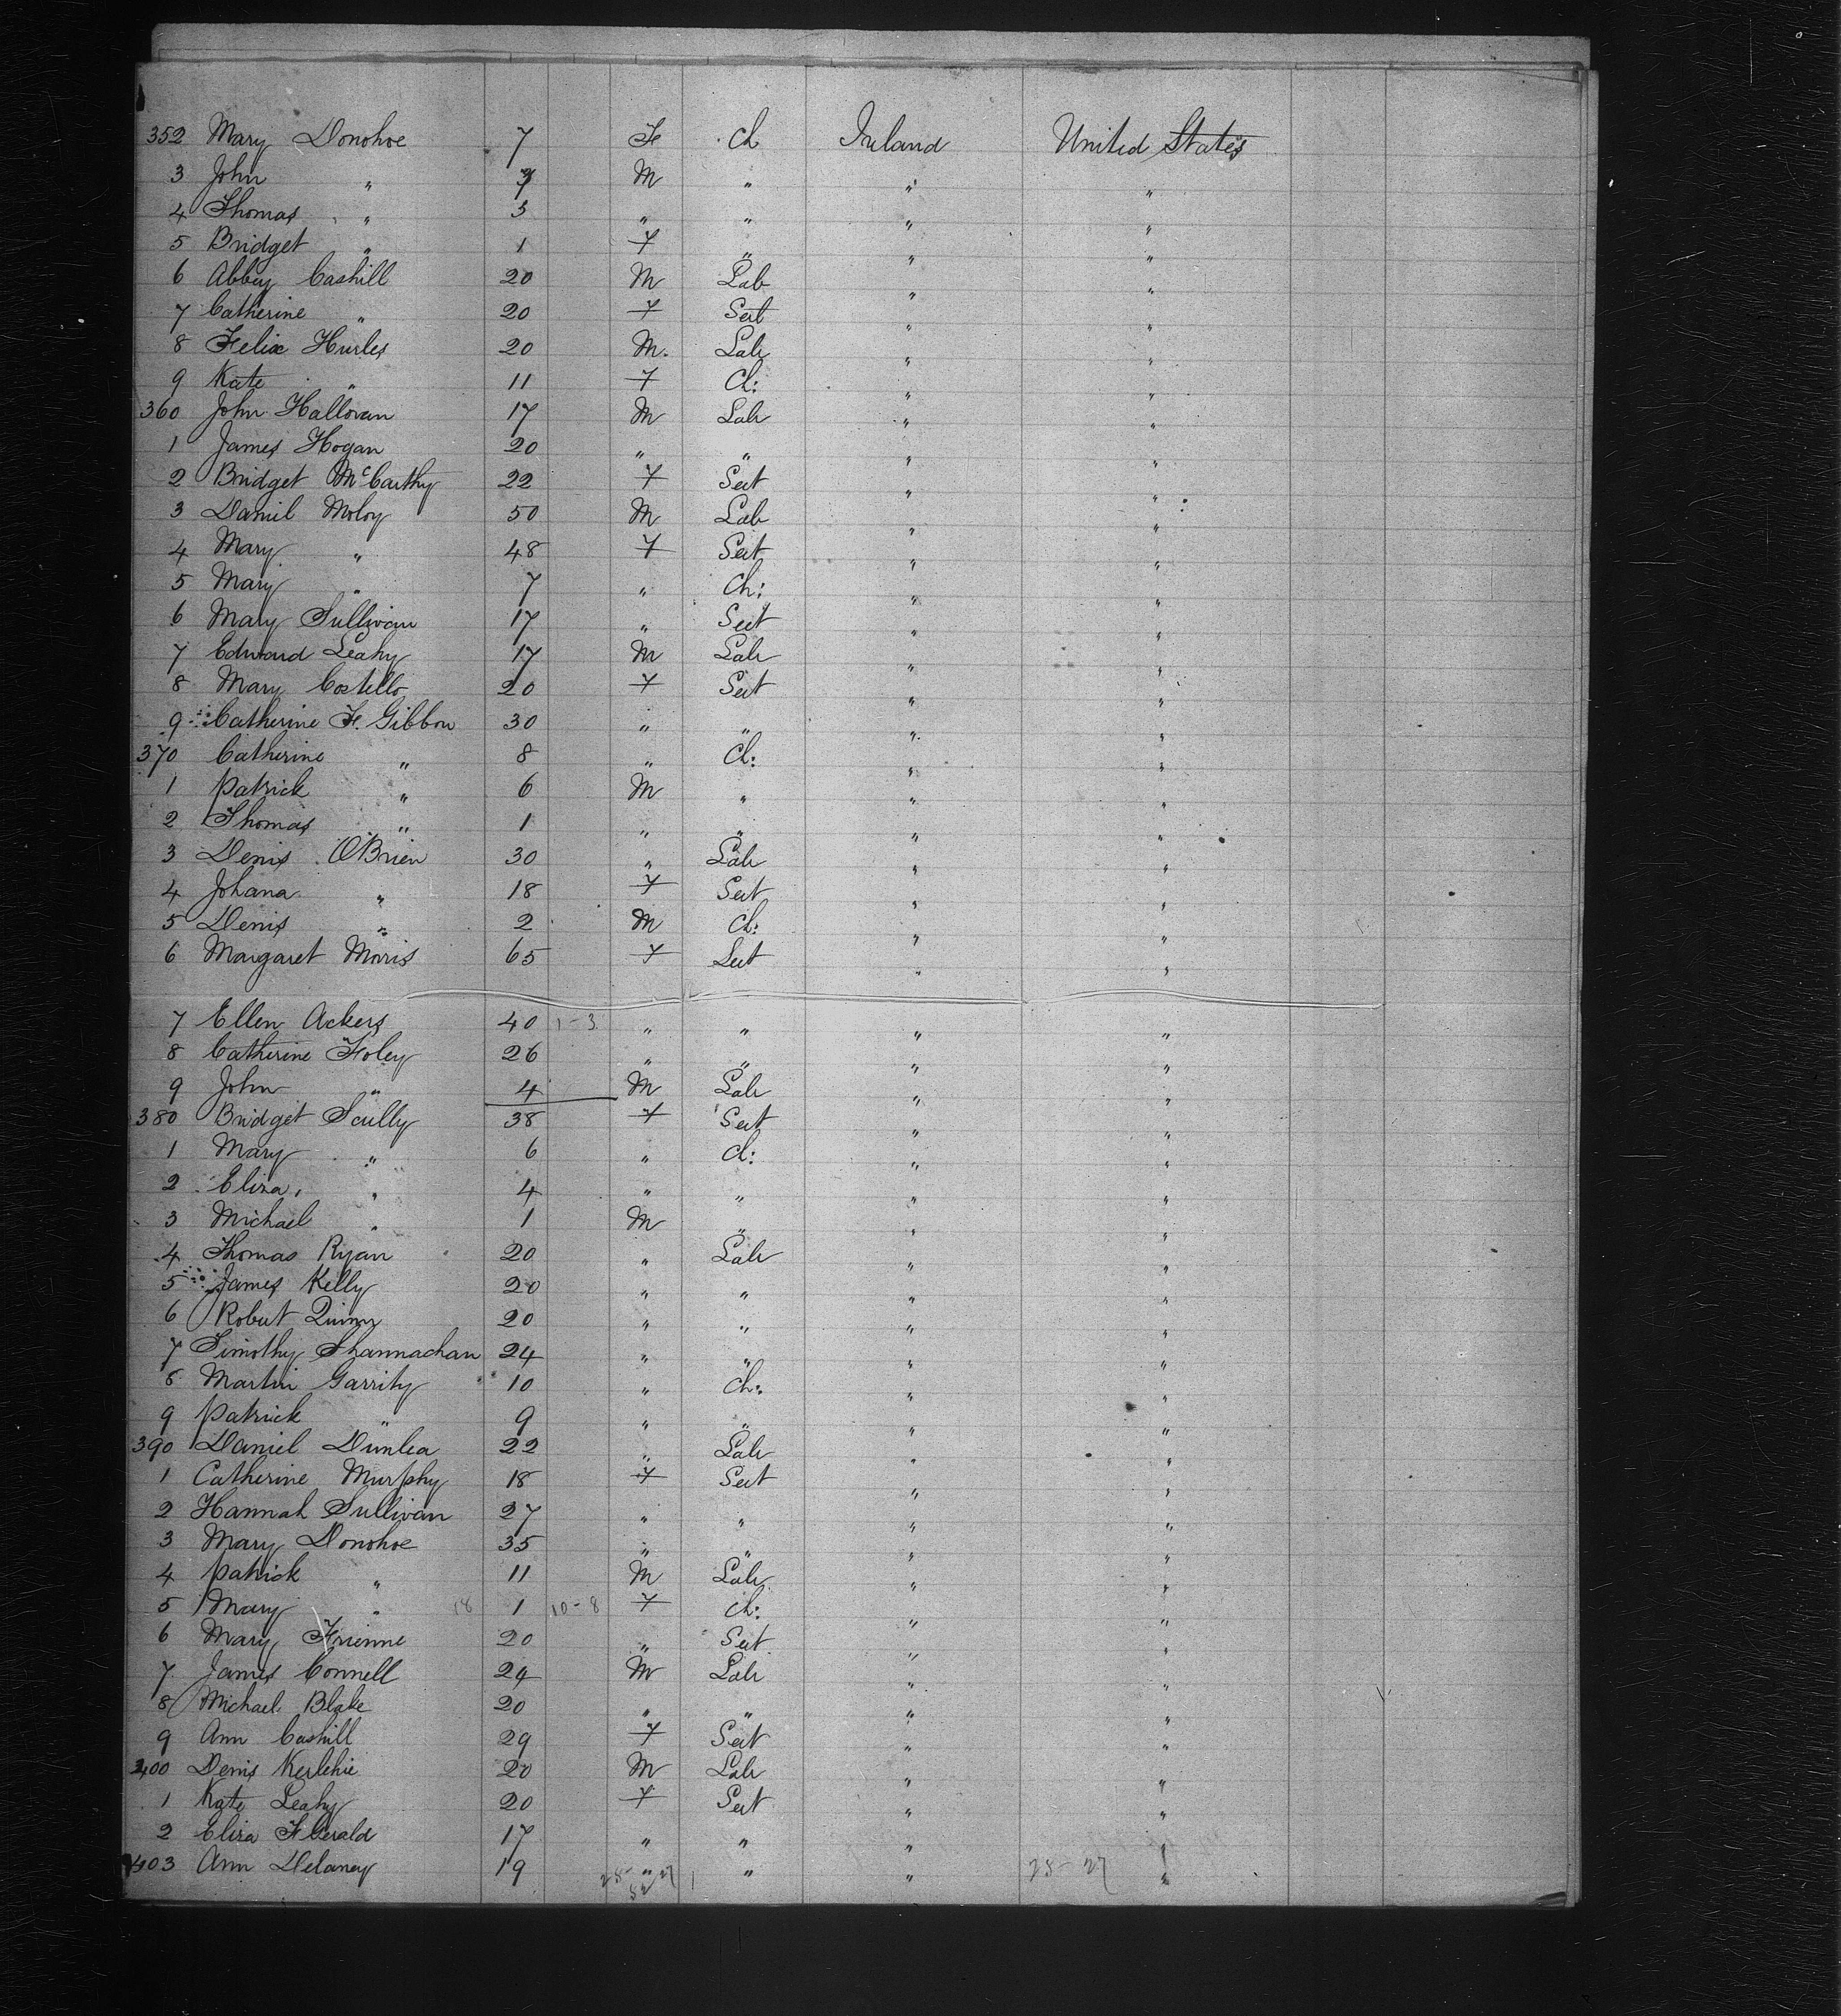 352 Mary Donohoe 7 F Ch Ireland United States
3 John " 7 M " " "
4 Thomas " 3 " " " "
5 Bridget " 1 F " " "
6 Abbey Cashill 20 M Lab " "
7 Catherine " 20 F Set " "
8 Felix Hurles 20 M. Lab " "
9 Kate " 11 F Ch: " "
360 John Halloran 17 M Lab " "
1 James Hogan 20 " " " "
2 Bridget McCarthy 22 F Set " "
3 Daniel Moloy 50 M Lab " "
4 Mary " 48 F Set " "
5 Mary " 7 " Ch: " "
6 Mary Sullivan 17 " Set " "
7 Edward Leahy 17 M Lab " "
8 Mary Costello 20 F Set " "
9 Catherine F. Gibbon 30 " " " "
370 Catherine " 8 " Ch: " "
1 Patrick " 6 M " " "
2 Thomas " 1 " " " "
3 Denis O'Brien 30 " Lab " "
4 Johana " 18 F Set " "
5 Denis " 2 M Ch: " "
6 Margaret Morris 65 F Set " "
7 Ellen Ackers 40 1-3 " " " "
8 Catherine Foley 26 " " " "
9 John " 4 M Lab " "
380 Bridget Scully 38 F Set " "
1 Mary " 6 " Ch: " "
2 Eliza " 4 " " " "
3 Michael " 1 M " " "
4 Thomas Ryan 20 " Lab " "
5 James Kelly 20 " " " "
6 Robert Quinn 20 " " " "
7 Timothy Shannachan 24 " " " "
8 Martin Garrity 10 " Ch: " "
9 Patrick " 9 " " " "
390 Daniel Dunlea 22 " Lab " "
1 Catherine Murphy 18 F Set " "
2 Hannah Sullivan 27 " " " "
3 Mary Donohoe 35 " " " "
4 Patrick " 11 M Lab " "
5 Mary " 18 1 10-8 F Ch: " "
6 Mary 20 " Set " "
7 James Connell 24 M Lab " "
8 Michael Blake 20 " " " "
9 Ann Cashill 29 F Set " "
400 Denis 20 M Lab " "
1 Kate Leahy 20 F Set " "
2 Eliza F Gerald 17 " " " "
403 Ann Delaney 19 " " " 28-27 "